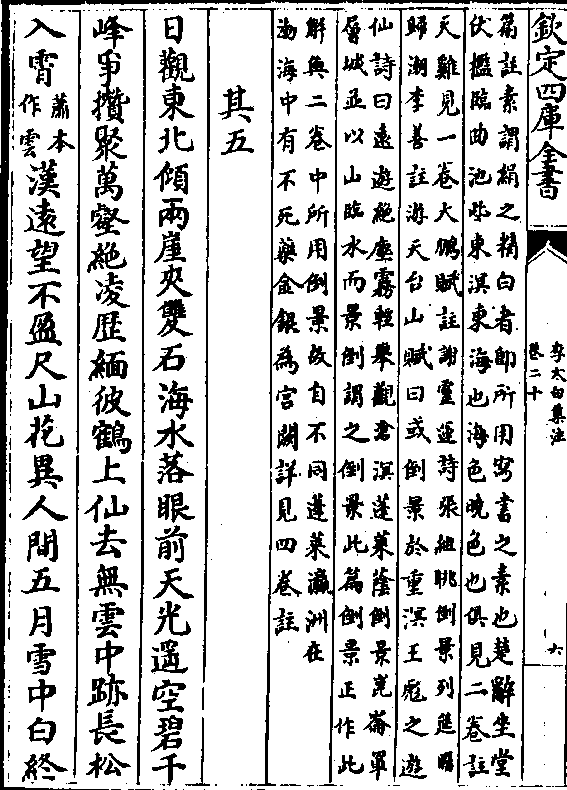 欽定四庫全書
李太白集注
卷二十
六
篇註素謂絹之精白者即所用寫書之素也楚辭坐堂
伏檻臨曲池些東溟東海也海色曉色也俱見二卷註
天雞見一卷大鵬賦註謝靈運詩張組眺倒景列筵矚
歸潮李善註游天台山賦曰或倒景於重溟王彪之遊
仙詩曰遠遊絶塵霧輕舉觀滄溟蓬萊蔭倒景崑崙罩
層城並以山臨水而景倒謂之倒景此篇倒景正作此
解與二卷中所用倒景故自不同蓬萊瀛洲在
渤海中有不死藥金銀為宫闕詳見四卷註
其五
日觀東北傾兩崖夾雙石海水落眼前天光遥空碧千
峰爭攢聚萬壑絶凌歷緬彼鶴上仙去無雲中跡長松
入霄蕭本作雲漢遠望不盈尺山花異人間五月雪中白終